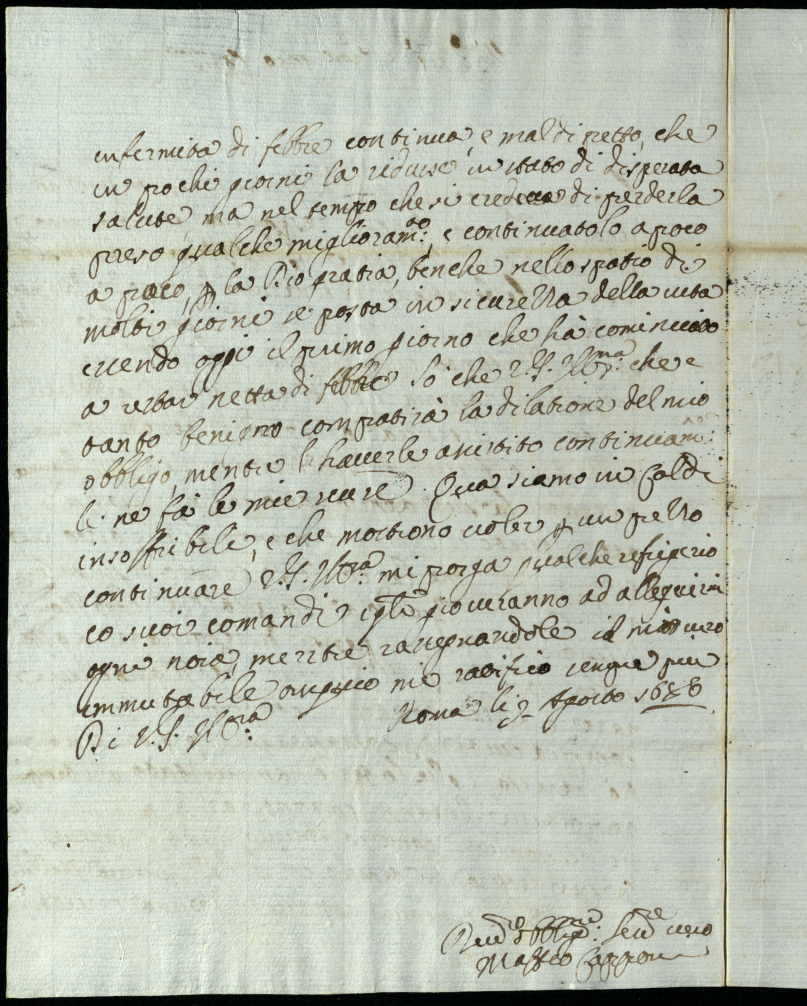 infermità di febbre continua, e mal di petto, che
in pochi giorni la ridusse in stato di disperata
salute ma nel tempo che si credeva di perderla
preso qualche miglioram.to, e continuatolo a poco
a poco, p la Dio gratia, benche nello spatio di
molti giorni se posta in sicurezza della vita
essendo oggi il primo giorno che hà cominciato
a restar netta di febbre. Sò che V.S. Ill.ma che e
tanto benigno compatirà la dilatione del mio
obbligo, mentre l'haverle assistito continuam.e
li ne fà le mie scuse. Qua siamo in caldi
insoffribile, e che mostrono voler p un pezzo
continuare V.S. Ill.ra mi porga qualche refrigerio
co suoi comandi i q.li gioveranno ad alleggerirmi
ogni noia, mentre rassegnandole il mio vero
immutabile ossequio mi ratifico sempre più
Di V.S. Ill.ra Roma li 2 Agosto 1688
Dev.o Obblig.mo Ser.re vero
Maffeo Capponi